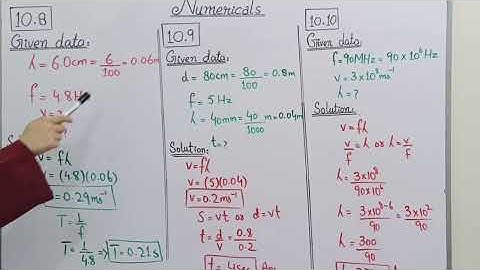 Numericals
10.8
Given data:
λ = 6.0cm = 6/100 = 0.06m
f = 4.8H
v = ?
v = fλ
v = (4.8)(0.06)
= 0.29ms⁻¹
T = 1/f
T = 1/4.8 => T = 0.21s
10.9
Given data:
d = 80cm = 80/100 = 0.8m
f = 5Hz
λ = 40mm = 40/1000 = 0.04m
t = ?
Solution:
v = fλ
v = (5)(0.04)
v = 0.2ms⁻¹
S = vt or d = vt
t = d/v = 0.8/0.2
t = 4sec Ans
10.10
Given data:
f = 90MHz = 90 x 10⁶Hz
v = 3x10⁸ms⁻¹
λ = ?
Solution:
v = fλ
v/f = λ or λ = v/f
λ = 3x10⁸/90x10⁶
λ = 3x10⁸⁻⁶/90 = 3x10²/90
λ = 300/90